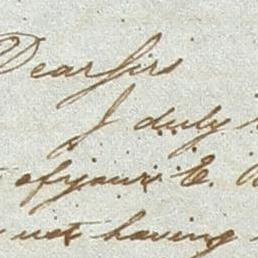 Dear Sirs
I duly
of yours E.
not having